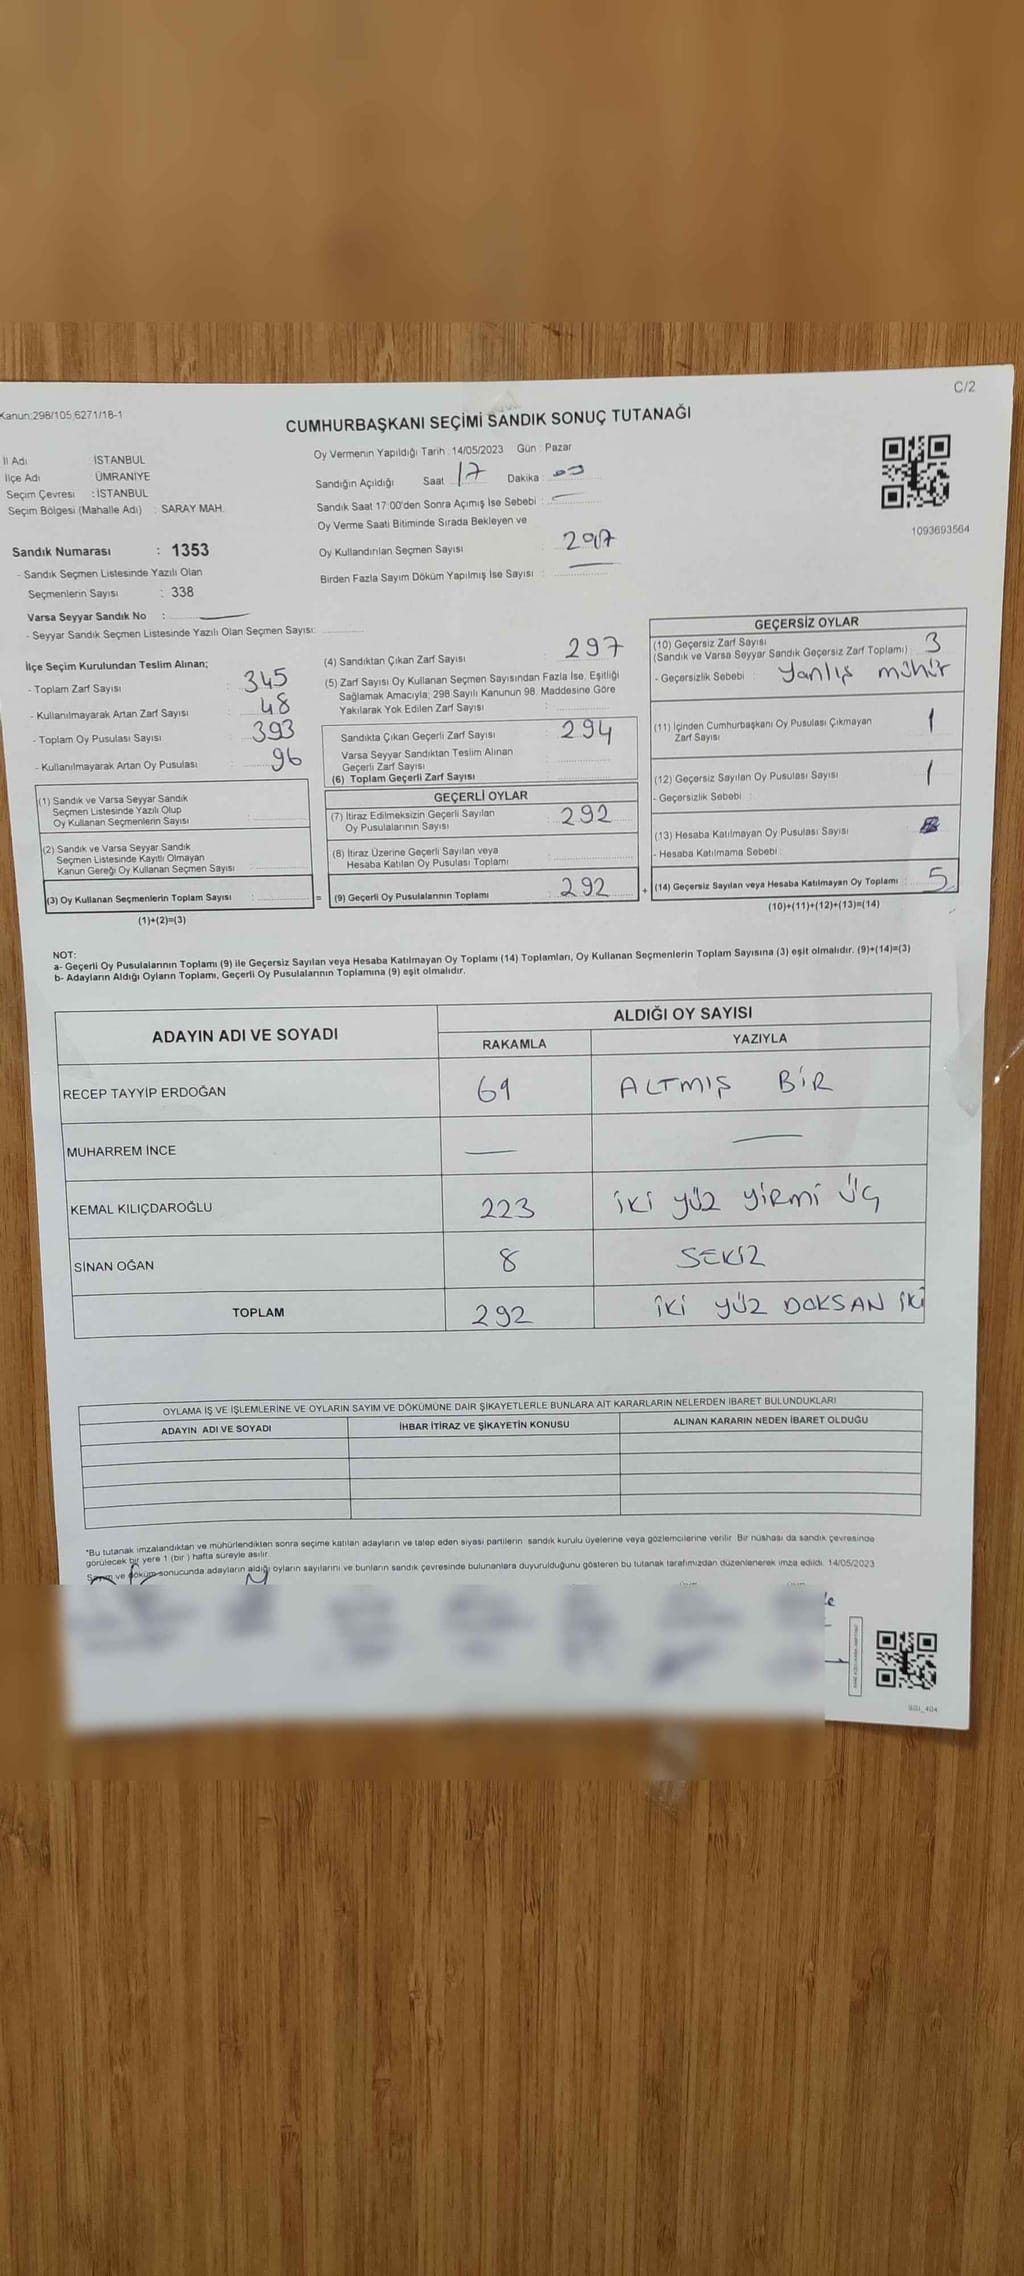 C/2
Kanun:298/105,6271/18-1
CUMHURBAŞKANI SEÇİMİ SANDIK SONUÇ TUTANAĞI
İl Adı : İSTANBUL
İlçe Adı : ÜMRANİYE
Seçim Çevresi : İSTANBUL
Seçim Bölgesi (Mahalle Adı) : SARAY MAH.
Sandık Numarası : 1353
- Sandık Seçmen Listesinde Yazılı Olan
Seçmenlerin Sayısı : 338
Varsa Seyyar Sandık No :
- Seyyar Sandık Seçmen Listesinde Yazılı Olan Seçmen Sayısı:
Oy Vermenin Yapıldığı Tarih : 14/05/2023 Gün : Pazar
Sandığın Açıldığı Saat 17 Dakika : 00
Sandık Saat 17:00'den Sonra Açımış İse Sebebi :
Oy Verme Saati Bitiminde Sırada Bekleyen ve
Oy Kullandırılan Seçmen Sayısı : 297
Birden Fazla Sayım Döküm Yapılmış İse Sayısı :
1093693564
İlçe Seçim Kurulundan Teslim Alınan;
- Toplam Zarf Sayısı : 345
- Kullanılmayarak Artan Zarf Sayısı : 48
- Toplam Oy Pusulası Sayısı : 393
- Kullanılmayarak Artan Oy Pusulası : 96
(1) Sandık ve Varsa Seyyar Sandık
Seçmen Listesinde Yazılı Olup
Oy Kullanan Seçmenlerin Sayısı :
(2) Sandık ve Varsa Seyyar Sandık
Seçmen Listesinde Kayıtlı Olmayan
Kanun Gereği Oy Kullanan Seçmen Sayısı :
(3) Oy Kullanan Seçmenlerin Toplam Sayısı : =
(1)+(2)=(3)
(4) Sandıktan Çıkan Zarf Sayısı : 297
(5) Zarf Sayısı Oy Kullanan Seçmen Sayısından Fazla İse, Eşitliği
Sağlamak Amacıyla; 298 Sayılı Kanunun 98. Maddesine Göre
Yakılarak Yok Edilen Zarf Sayısı :
Sandıkta Çıkan Geçerli Zarf Sayısı : 294
Varsa Seyyar Sandıktan Teslim Alınan
Geçerli Zarf Sayısı :
(6) Toplam Geçerli Zarf Sayısı :
GEÇERLİ OYLAR
(7) İtiraz Edilmeksizin Geçerli Sayılan
Oy Pusulalarının Sayısı : 292
(8) İtiraz Üzerine Geçerli Sayılan veya
Hesaba Katılan Oy Pusulası Toplamı :
(9) Geçerli Oy Pusulalarının Toplamı : 292 +
GEÇERSİZ OYLAR
(10) Geçersiz Zarf Sayısı
(Sandık ve Varsa Seyyar Sandık Geçersiz Zarf Toplamı) : 3
- Geçersizlik Sebebi : Yanlış mühür
(11) İçinden Cumhurbaşkanı Oy Pusulası Çıkmayan
Zarf Sayısı : 1
(12) Geçersiz Sayılan Oy Pusulası Sayısı : 1
- Geçersizlik Sebebi :
(13) Hesaba Katılmayan Oy Pusulası Sayısı :
- Hesaba Katılmama Sebebi :
(14) Geçersiz Sayılan veya Hesaba Katılmayan Oy Toplamı : 5
(10)+(11)+(12)+(13)=(14)
NOT:
a- Geçerli Oy Pusulalarının Toplamı (9) ile Geçersiz Sayılan veya Hesaba Katılmayan Oy Toplamı (14) Toplamları, Oy Kullanan Seçmenlerin Toplam Sayısına (3) eşit olmalıdır. (9)+(14)=(3)
b- Adayların Aldığı Oyların Toplamı, Geçerli Oy Pusulalarının Toplamına (9) eşit olmalıdır.
ADAYIN ADI VE SOYADI ALDIĞI OY SAYISI
RAKAMLA YAZIYLA
RECEP TAYYİP ERDOĞAN 61 ALTMIŞ BİR
MUHARREM İNCE — —
KEMAL KILIÇDAROĞLU 223 İKİ YÜZ YİRMİ ÜÇ
SİNAN OĞAN 8 SEKİZ
TOPLAM 292 İKİ YÜZ DOKSAN İKİ
OYLAMA İŞ VE İŞLEMLERİNE VE OYLARIN SAYIM VE DÖKÜMÜNE DAİR ŞİKAYETLERLE BUNLARA AİT KARARLARIN NELERDEN İBARET BULUNDUKLARI
ADAYIN ADI VE SOYADI İHBAR İTİRAZ VE ŞİKAYETİN KONUSU ALINAN KARARIN NEDEN İBARET OLDUĞU
*Bu tutanak imzalandıktan ve mühürlendikten sonra seçime katılan adayların ve talep eden siyasi partilerin sandık kurulu üyelerine veya gözlemcilerine verilir. Bir nüshası da sandık çevresinde
görülecek bir yere 1 (bir ) hafta süreyle asılır.
Sayım ve döküm sonucunda adayların aldığı oyların sayılarını ve bunların sandık çevresinde bulunanlara duyurulduğunu gösteren bu tutanak tarafımızdan düzenlenerek imza edildi. 14/05/2023